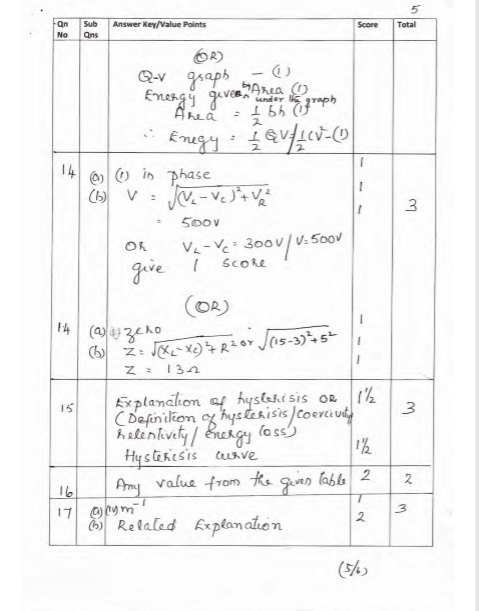 5
Qn No Sub Qns Answer Key/Value Points Score Total
(OR)
Q-V graph – (1)
Energy given by Area (1)
under the graph
Area = 1/2 bh (1)
∴ Enegy = 1/2 QV / 1/2 CV² – (1)
14 (a) (i) in phase 1
(b) V = √(V_L – V_C)² + V_R² 1
= 500V 1 3
OR V_L – V_C = 300V / V = 500V
give 1 score
(OR)
14 (a) (i) zero 1
(b) Z = √(X_L – X_C)² + R² or √(15-3)² + 5² 1
Z = 13Ω 1
15 Explanation of hysterisis OR 1½ 3
(Definition of hysterisis / coercivity
retentivity / energy loss)
Hysterisis curve 1½
16 Any value from the given table 2 2
17 (a) m⁻¹ 1 3
(b) Related Explanation 2
(5/6)